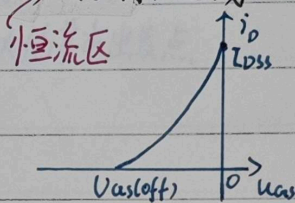 恒流区
iD
IDSS
UGS(off)
O
uGS